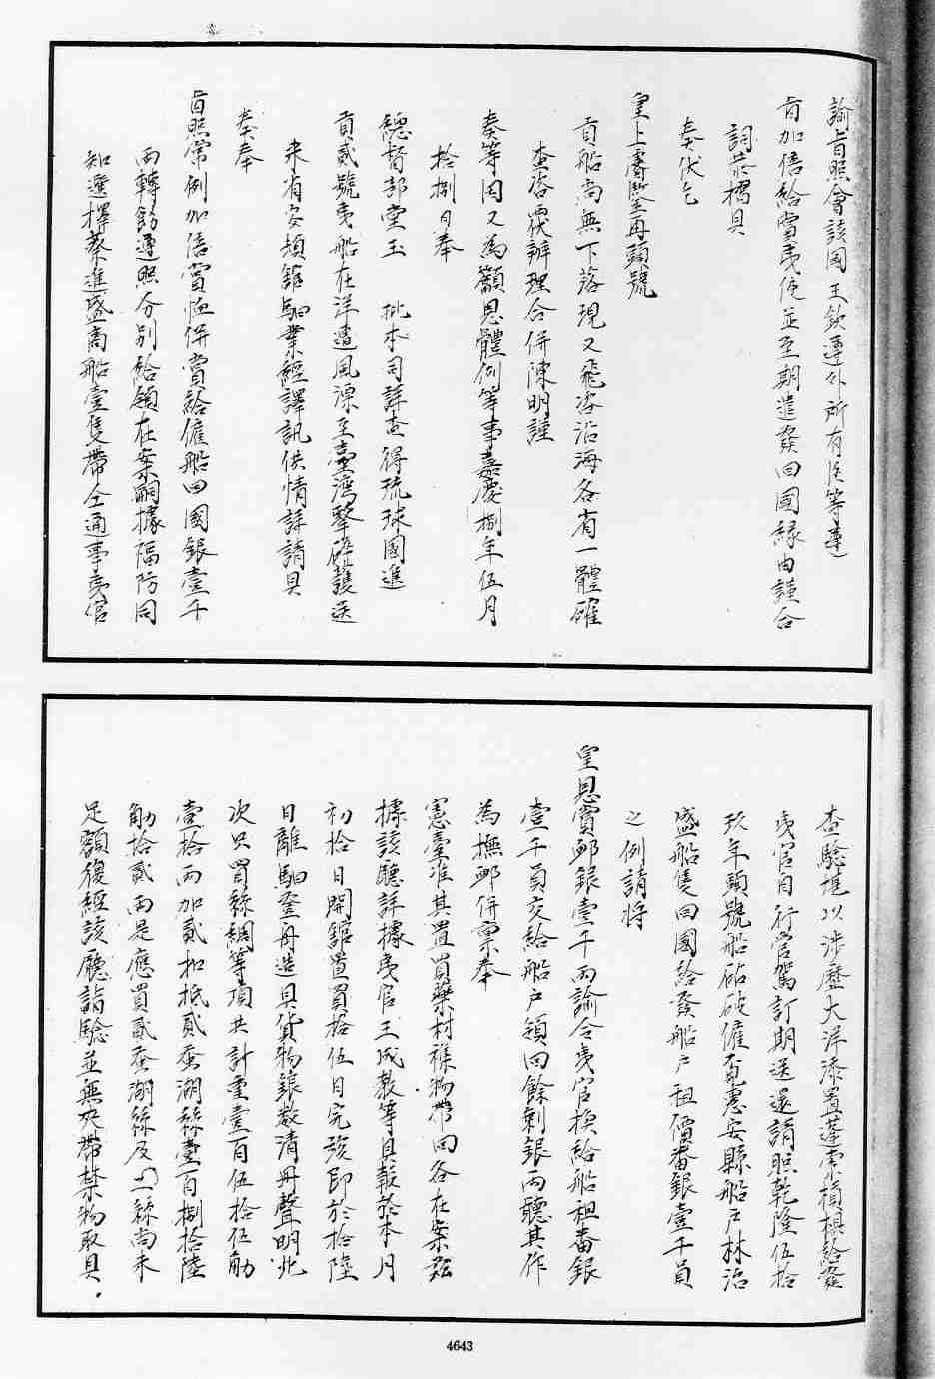 諭旨照會該國王欽遵外所有住等事
旨加倍給賞夷使並至期遣發回國緣由謹合
詞恭摺具
奏伏乞
皇上睿鑒再頭號
貢船尚無下落現又飛咨沿海各省一體確
查咨覆辦理合併陳明謹
奏等因又為籲恩體例等事嘉慶捌年伍月
拾捌日奉
總督部堂玉 批本司詳查得琉球國進
貢貳號夷船在洋遭風漂至臺灣擊碎護送
來省安頓館驛業經譯訊供情詳請具
奏奉
旨照常例加倍賞恤併賞給僱船回國銀壹千
兩轉飭遵照分別給領在案嗣據福防同
知選擇蔡進盛商船壹隻帶仝通事夷官
查驗堪以涉歷大洋添置蓬索槓椇給發
夷官自行管駕訂期送還請照乾隆伍拾
玖年頭號船砧破僱覓惠安縣船戶林治
盛船隻回國給發船戶租價番銀壹千員
之例請將
皇恩賞卹銀壹千兩諭令夷官換給船租番銀
壹千員交給船戶領回餘剩銀兩聽其作
為撫卹併稟奉
憲臺准其置買藥材雜物帶回各在案茲
據該廳詳據夷官王成教等具報於本月
初拾日開館置買拾伍日完竣即於拾陸
日離驛登舟造具貨物銀數清冊聲明此
次只買絲綢等項共計重壹百伍拾伍觔
壹拾兩加貳扣抵貳蚕湖絲壹百捌拾陸
觔拾貳兩是應買貳蚕湖絲及 絲尚未
足額復經該廳詣驗並無夾帶禁物取具
4643